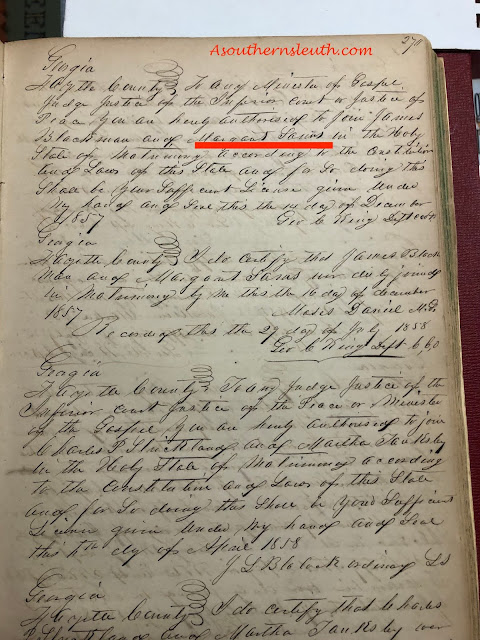 Asouthernsleuth.com
270
Georgia
Fayette County To any Minister of Gospel
Judge Justice of the Inferior Court or Justice of
Peace you are hereby authorised to join James
Blackman and Margaret in the Holy
State of Matrimony according to the Constitution
and Laws of this State and for So doing this
Shall be your Sufficient License given under
my hand and Seal this the day of December
1857 Geo C King
Georgia
Fayette County I do certify that James Black
man and Margaret were duly joined
in Matrimony by me this the 10 day of december
1857 Moses Daniel
Recorded this the 29 day of July 1858
Geo C King Dept C.C.O
Georgia
Fayette County To any Judge Justice of the
Inferior Court Justice of the Peace or Minister
of the Gospel you are hereby authorised to join
Charles P Strickland and Martha Tanksley
in the Holy State of Matrimony according
to the Constitution and Laws of this State
and for So doing this Shall be your Sufficient
License given under my hand and Seal
this day of April 1858
J L Blalock ordinary LS
Georgia
Fayette County I do certify that Charles
P Strickland and Martha Tanksley wer